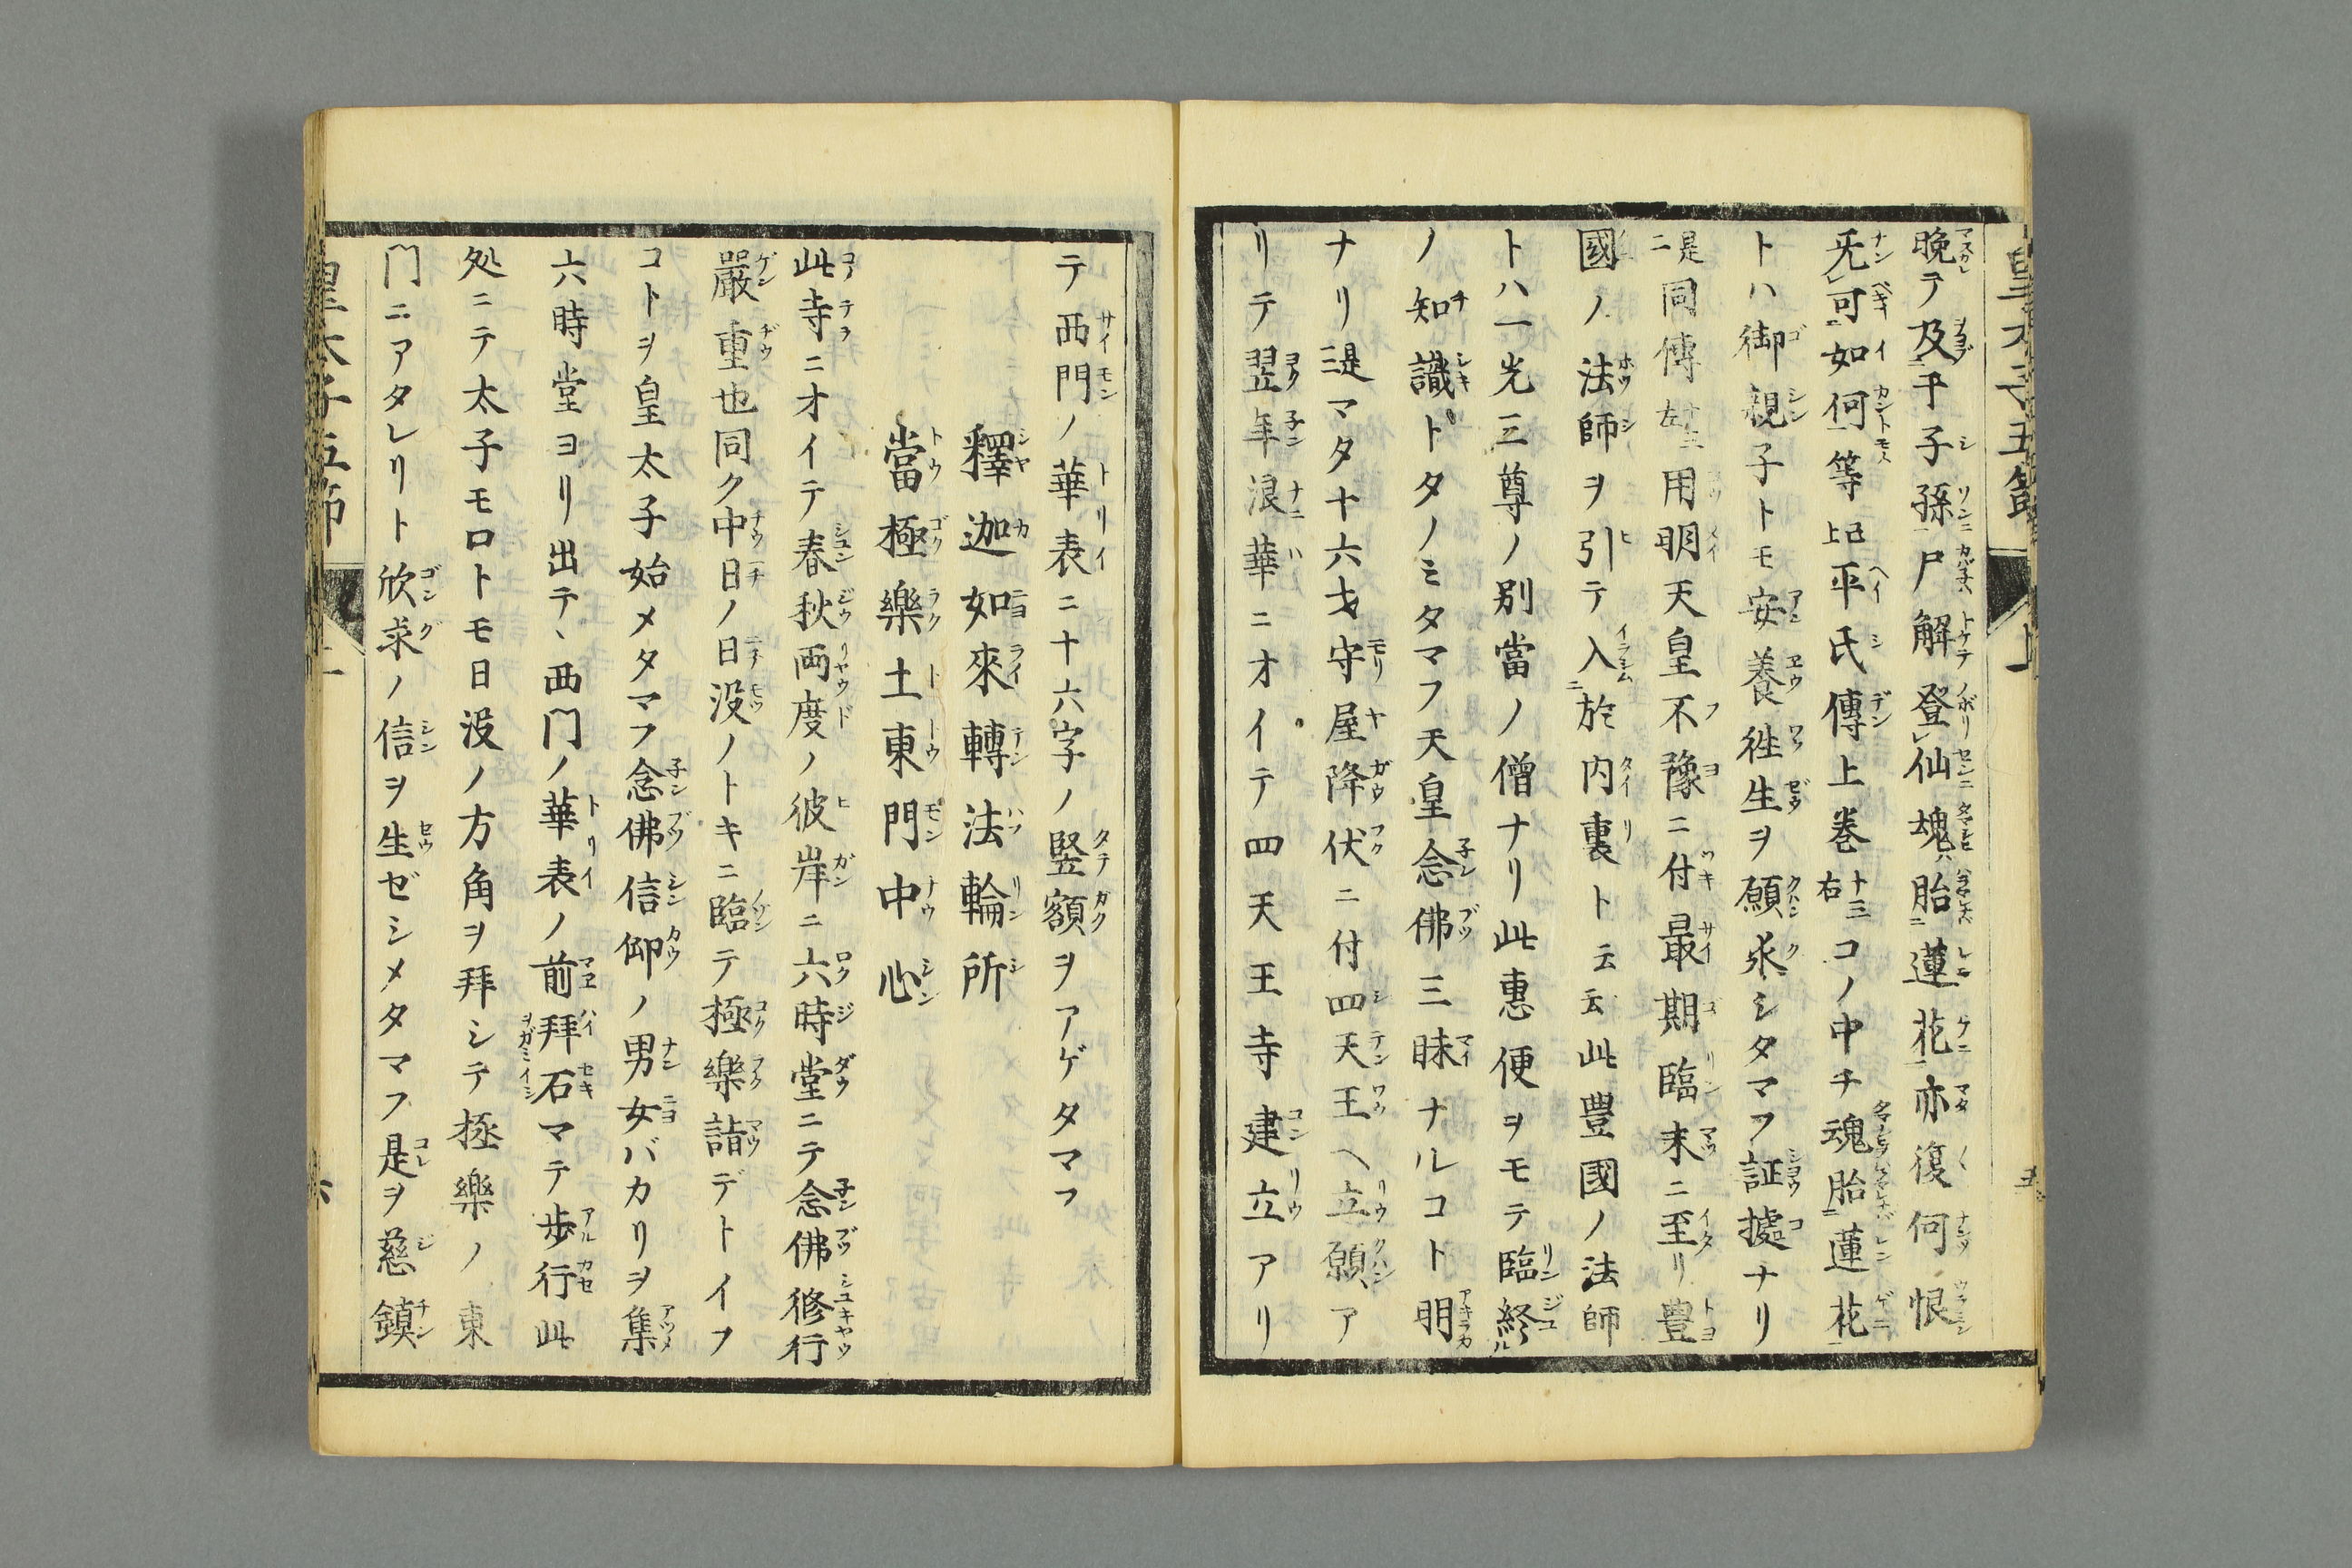 晩テ及二于子孫一尸解登レ仙魂ハ胎二蓮花一亦復何恨
旡レ可二如何一等 平氏傳上巻 十三右 コノ中チ魂胎二蓮花一
トハ御親子トモ安養徃生ヲ願求シタマフ証據ナリ
是二同傳 用明天皇不豫ニ付最期臨末ニ至リ豊
國ノ法師ヲ引テ入二於内裏ト云云此豊國ノ法師
トハ一光三尊ノ別當ノ僧ナリ此惠便ヲモテ臨終
ノ知識トタノミタマフ天皇念佛三昧ナルコト明
ナリ 是三 マタ十六才守屋降伏ニ付四天王ヘ立願アア
リテ翌年浪華ニオイテ四天王寺建立アリ
テ西門ノ華表ニ十六字ノ竪額ヲアゲタマフ
釋迦如來轉法輪所
當極樂土東門中心
此寺ニオイテ春秋両度ノ彼岸ニ六時堂ニテ念佛修行
嚴重也同ク中日ノ日没ノトキニ臨テ極樂詣デトイフ
コトヲ皇太子始メタマフ念佛信仰ノ男女バカリヲ集
六時堂ヨリ出テ、西門ノ華表ノ前拜石マテ歩行此
処ニテ太子モロトモ日没ノ方角ヲ拜シテ極樂ノ東
門ニアタレリト欣求ノ信ヲ生ゼシメタマフ是ヲ慈鎮